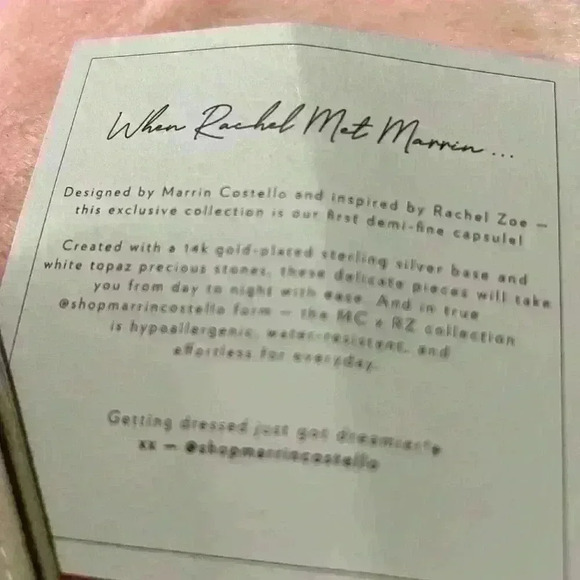 When Rachel Met Marrin ...
Designed by Marrin Costello and inspired by Rachel Zoe —
this exclusive collection is our first demi-fine capsule!
Created with a 14k gold-plated sterling silver base and
white topaz precious stones, these delicate pieces will take
you from day to night with ease. And in true
@shopmarrincostello form — the MC x RZ collection
is hypoallergenic, water-resistant, and
effortless for everyday.
Getting dressed just got dreamier
xx — @shopmarrincostello